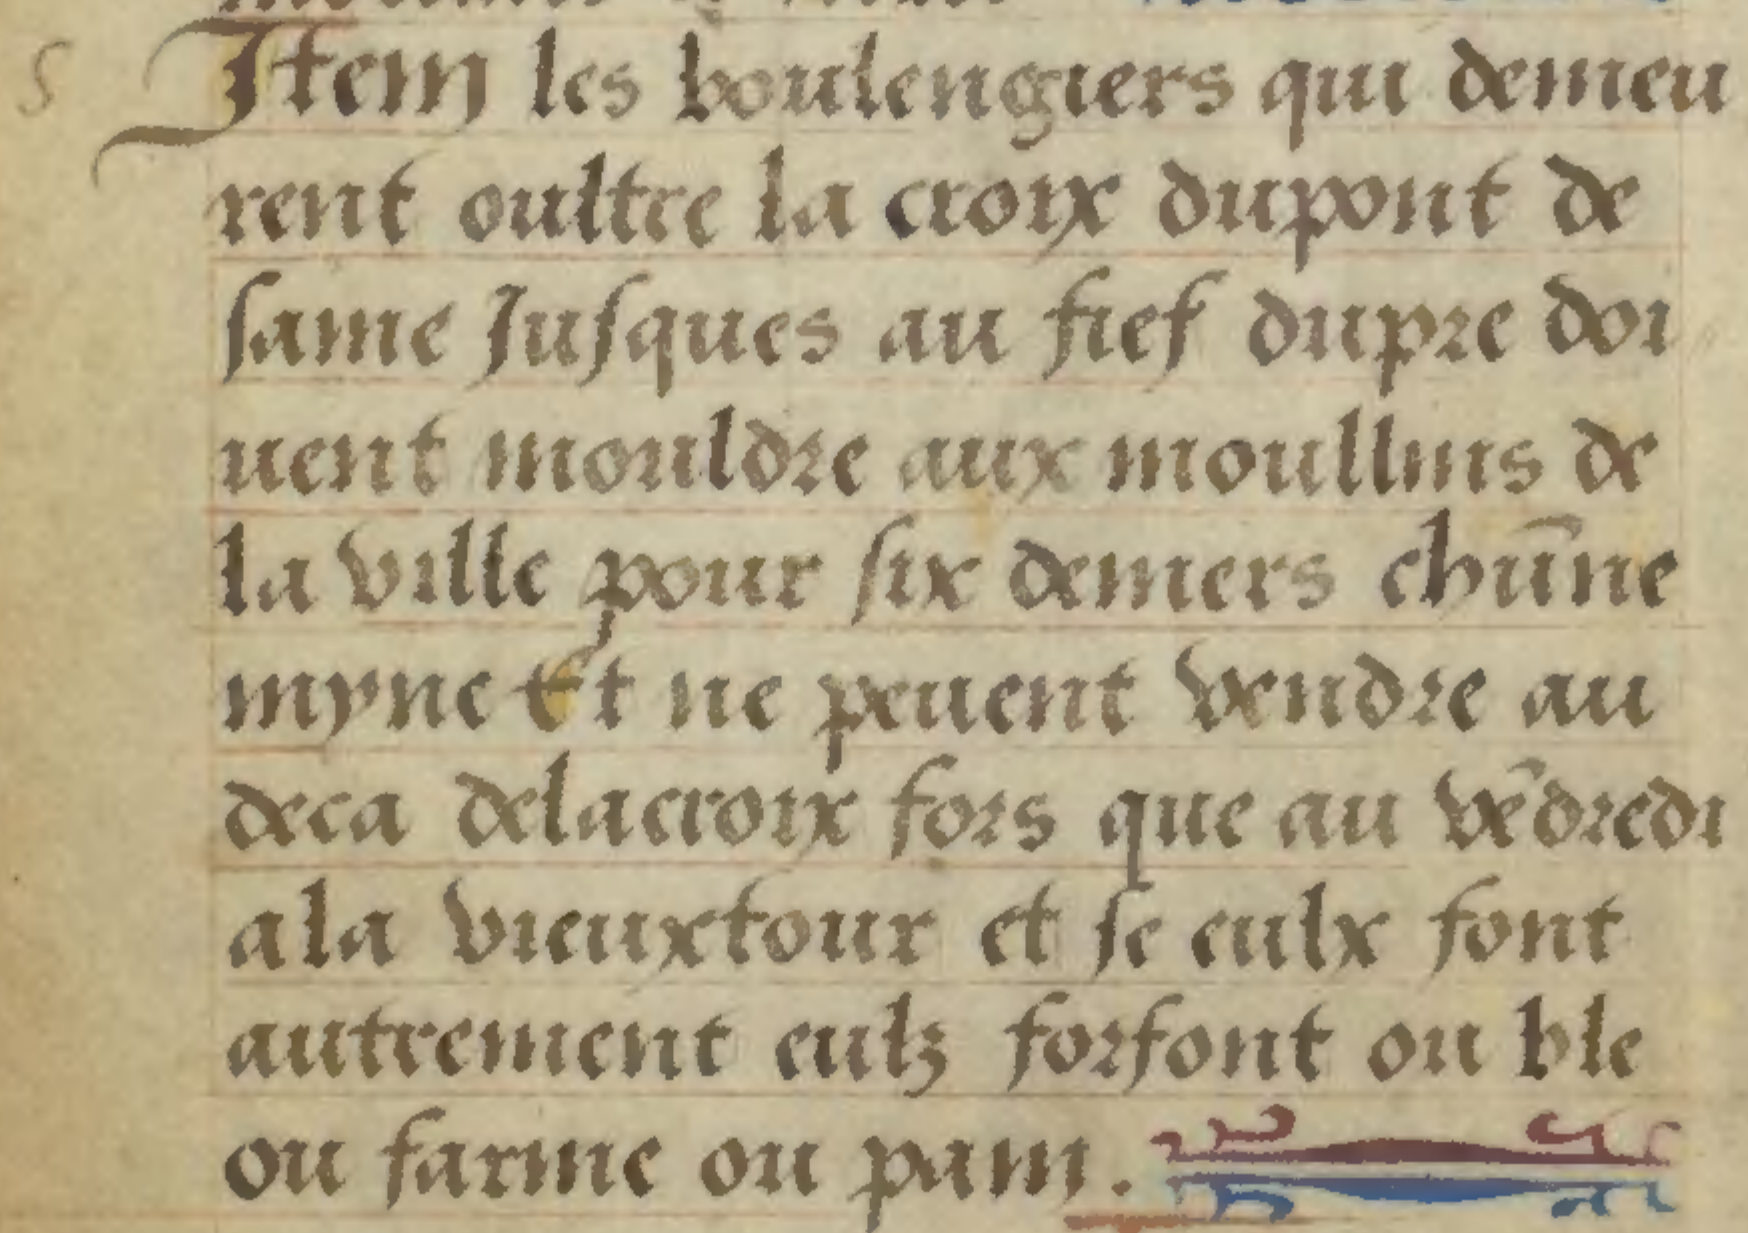 s Item les boulengiers qui demeu
rent oultre la croix dupont de
saine Jusques au fief dupre doi
uent mouldre aux moullins de
la ville pour six deniers chūne
myne Et ne peuent vendre au
deca delacroix fors que au vēdredi
ala vieuxtour et se eulx font
autrement eulz forfont ou ble
ou farine ou pain.